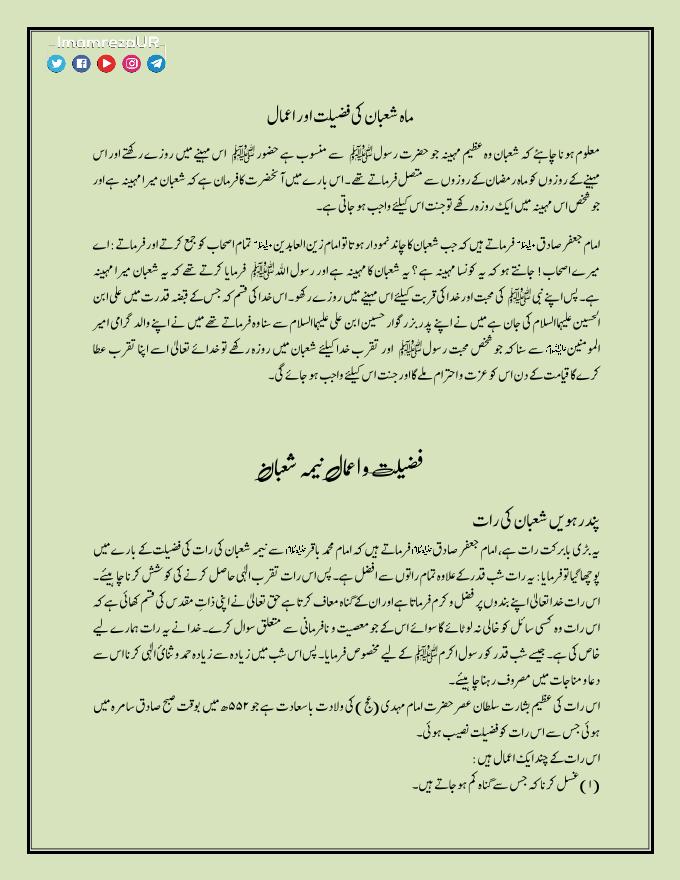 ImamrezaUR
ماہ شعبان کی فضیلت اور اعمال
معلوم ہونا چاہئے کہ شعبان وہ عظیم مہینہ جو حضرت رسول ﷺ سے منسوب ہے حضور ﷺ اس مہینے میں روزے رکھتے اور اس
مہینے کے روزوں کو ماہ رمضان کے روزوں سے متصل فرماتے تھے۔ اس بارے میں آنحضرت کا فرمان ہے کہ شعبان میرا مہینہ ہے اور
جو شخص اس مہینہ میں ایک روزہ رکھے تو جنت اس کیلئے واجب ہو جاتی ہے۔
امام جعفر صادق فرماتے ہیں کہ جب شعبان کا چاند نمودار ہوتا تو امام زین العابدین تمام اصحاب کو جمع کرتے اور فرماتے : اے
میرے اصحاب ! جانتے ہو کہ یہ کونسا مہینہ ہے؟ یہ شعبان کا مہینہ ہے اور رسول اللہ ﷺ فرمایا کرتے تھے کہ یہ شعبان میرا مہینہ
ہے۔ پس اپنے نبی ﷺ کی محبت اور خدا کی قربت کیلئے اس مہینے میں روزے رکھو۔ اس خدا کی قسم کہ جس کے قبضہ قدرت میں علی ابن
الحسین علیہما السلام کی جان ہے میں نے اپنے پدر بزرگوار حسین ابن علی علیہما السلام سے سنا وہ فرماتے تھے میں نے اپنے والد گرامی امیر
المومنین سے سنا کہ جو شخص محبت رسول ﷺ اور تقرب خدا کیلئے شعبان میں روزہ رکھے تو خدائے تعالیٰ اسے اپنا تقرب عطا
کرے گا قیامت کے دن اس کو عزت و احترام ملے گا اور جنت اس کیلئے واجب ہو جائے گی۔
فضیلت و اعمال نیمہ شعبان
پندرہویں شعبان کی رات
یہ بڑی بابرکت رات ہے، امام جعفر صادق فرماتے ہیں کہ امام محمد باقر سے نیمہ شعبان کی رات کی فضیلت کے بارے میں
پوچھا گیا تو فرمایا: یہ رات شب قدر کے علاوہ تمام راتوں سے افضل ہے۔ پس اس رات تقرب الٰہی حاصل کرنے کی کوشش کرنا چاہیئے۔
اس رات خدا تعالیٰ اپنے بندوں پر فضل و کرم فرماتا ہے اور ان کے گناہ معاف کرتا ہے حق تعالیٰ نے اپنی ذاتِ مقدس کی قسم کھائی ہے کہ
اس رات وہ کسی سائل کو خالی نہ لوٹائے گا سوائے اس کے جو معصیت و نافرمانی سے متعلق سوال کرے۔ خدا نے یہ رات ہمارے لیے
خاص کی ہے۔ جیسے شب قدر کو رسول اکرم ﷺ کے لیے مخصوص فرمایا۔ پس اس شب میں زیادہ سے زیادہ حمد و ثنائ الٰہی کرنا اس سے
دعا و مناجات میں مصروف رہنا چاہیئے۔
اس رات کی عظیم بشارت سلطان عصر حضرت امام مہدی (عج) کی ولادت باسعادت ہے جو ۵۵۲ھ میں بوقت صبح صادق سامرہ میں
ہوئی جس سے اس رات کو فضیلت نصیب ہوئی۔
اس رات کے چند ایک اعمال ہیں :
(۱) غسل کرنا کہ جس سے گناہ کم ہو جاتے ہیں۔